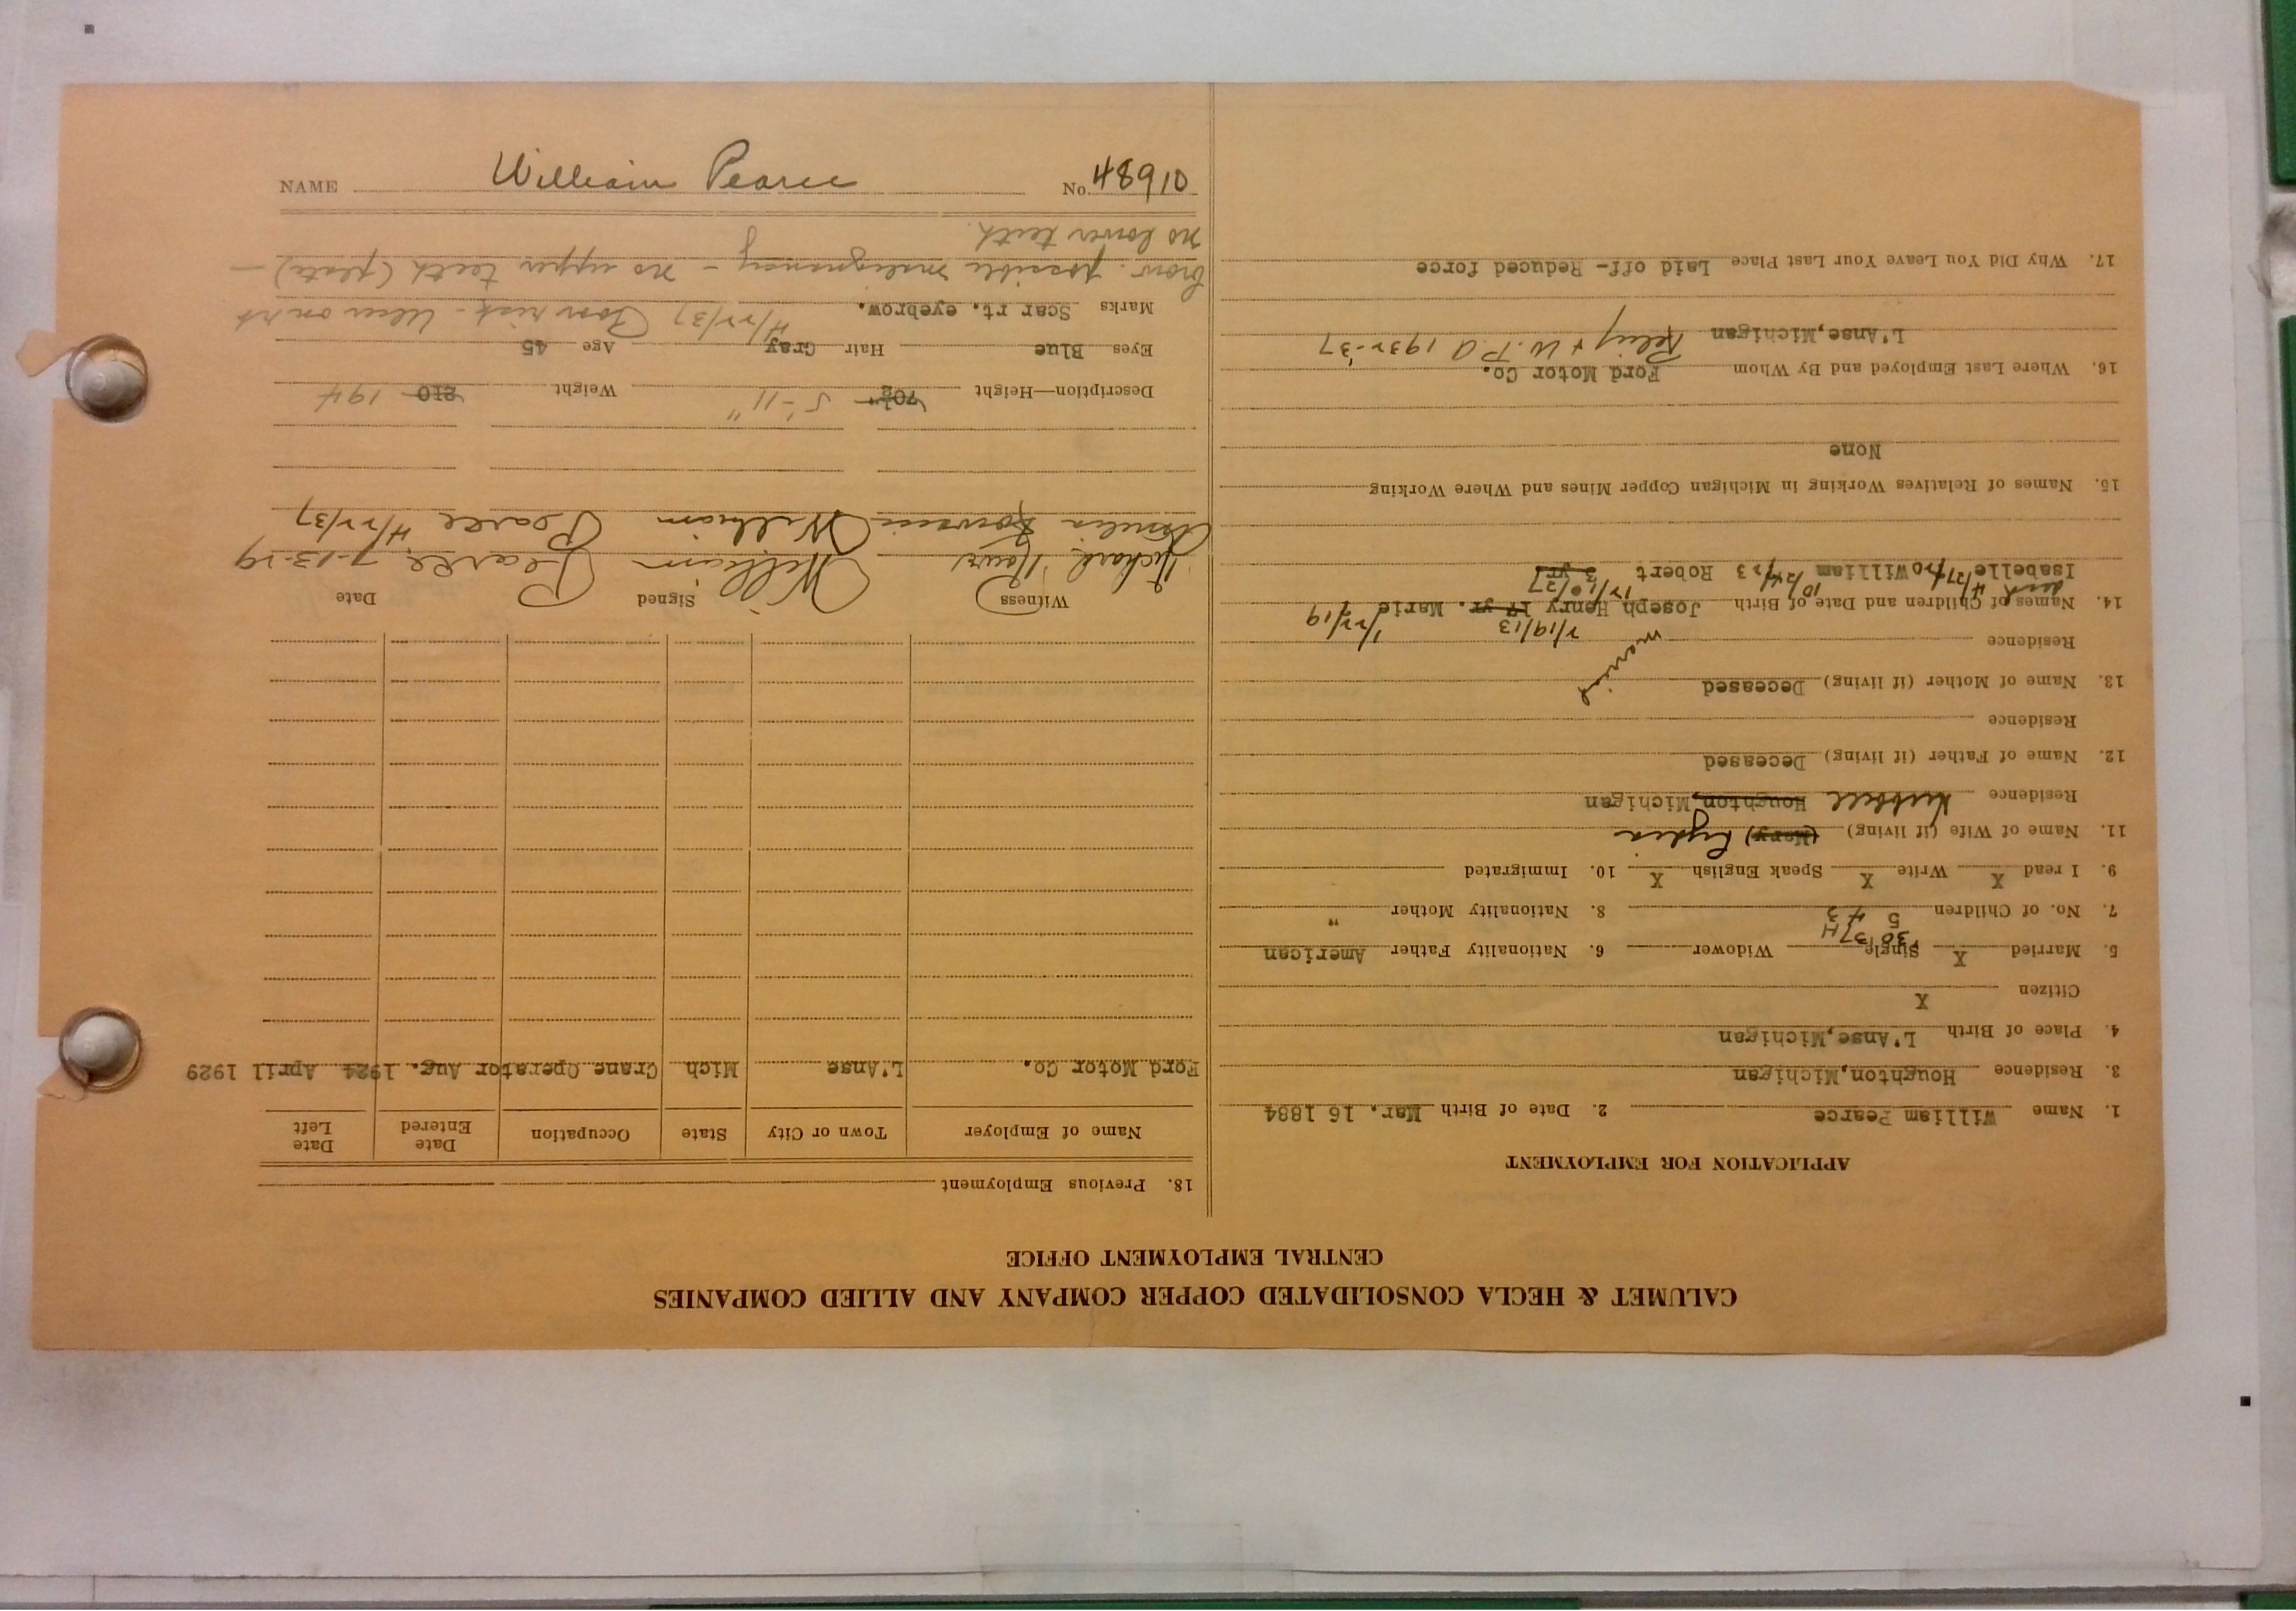 NAME William Pearce No. 48910
CALUMET & HECLA CONSOLIDATED COPPER COMPANY AND ALLIED COMPANIES
CENTRAL EMPLOYMENT OFFICE
APPLICATION FOR EMPLOYMENT
1. Name William Pearce 2. Date of Birth Mar. 16 1884
3. Residence Houghton, Michigan
4. Place of Birth L'Anse, Michigan
Citizen X
5. Married X Single Widower 6. Nationality Father American
30 37H
7. No. of Children 5 8. Nationality Mother "
9. I read X Write X Speak English X 10. Immigrated
11. Name of Wife (if living) (Mary) Lydia
Residence Hubbell Houghton, Michigan
12. Name of Father (if living) Deceased
Residence
13. Name of Mother (if living) Deceased
Residence
married 2/19/13 1/22/19
14. Names of Children and Date of Birth Joseph Henry 17 yr. Marie
4/27/20 10/24/23 12/10/27
Isabelle William Robert 3 yr
15. Names of Relatives Working in Michigan Copper Mines and Where Working
None
16. Where Last Employed and By Whom Ford Motor Co.
L'Anse, Michigan Relief & W.P.A 1932-37
17. Why Did You Leave Your Last Place Laid off- Reduced force
18. Previous Employment
Name of Employer Town or City State Occupation Date Entered Date Left
Ford Motor Co. L'Anse Mich Crane Operator Aug. 1924 April 1929
Witness Signed Date
Richard William Pearce 7-13-29
Amelia William Pearce 4/22/37
Description—Height 70½" 5'-11" Weight 210 194
Eyes Blue Hair Gray Age 45
Marks Scar rt. eyebrow. 4/22/37 Poor risk - Ulcer on rt
brow. possible malignancy - no upper teeth (plate) -
no lower teeth.